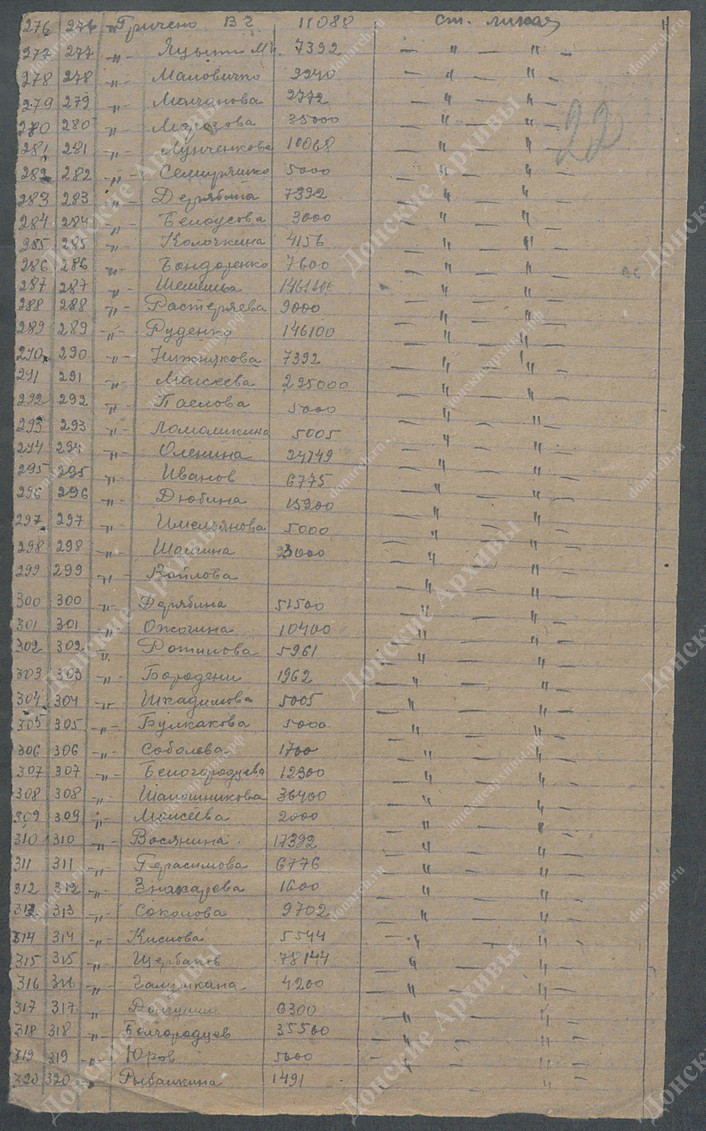 276 276 " Гричено В Г 11088 ст. лихая 11
277 277 -"- Яцына М. 7392 - " - " -
278 278 -"- Маловичко 9240 - " - " -
279 279 -"- Молчанова 2772 - " - " -
280 280 -"- Марозова 35000 - " - " - 22
281 281 -"- Лунченкова 10068 - " - " -
282 282 -"- 5000 - " - " -
283 283 -"- Дерябина 7392 - " - " -
284 284 -"- Белоусова 3000 - " - " -
285 285 -"- Колочкина 4156 - " - " -
286 286 -"- Бондаренко 7600 - " - " -
287 287 -"- - " - " -
288 288 -"- Растеряева 9000 - " - " -
289 289 -"- Руденко 146100 - " - " -
290 290 -"- Нижникова 7392 - " - " -
291 291 -"- Моисеева 225000 - " - " -
292 292 -"- Павлова 5000 - " - " -
293 293 -"- Ломамкина 5005 - " - " -
294 294 -"- Оленина 24749 - " - " -
295 295 -"- Иванов 6775 - " - " -
296 296 -"- Дюбина 15200 - " - " -
297 297 -"- Имельянова 5000 - " - " -
298 298 -"- Шашина 23000 - " - " -
299 299 -"- Войлова - " - " -
300 300 -"- Дерябина 51500 - " - " -
301 301 -"- Ожогина 10400 - " - " -
302 302 " 5961 - " - " -
303 303 -"- Бородени 1962 - " - " -
304 304 -"- 5005 - " - " -
305 305 -"- Булкакова 5000 - " - " -
306 306 -"- Соболева 1700 - " - " -
307 307 -"- Белогородцева 12300 - " - " -
308 308 -"- Шапошникова 36400 - " - " -
309 309 -"- Моисеева 2000 - " - " -
310 310 -"- Восянина 17392 - " - " -
311 311 -"- Герасимова 6776 - " - " -
312 312 -"- Знахарева 1600 - " - " -
313 313 -"- Соколова 9702 - " - " -
314 314 -"- Кислова 5544 - " - " -
315 315 -"- Щербаков 78144 - " - " -
316 316 -"- Галушкана 4200 - " - " -
317 317 -"- 6300 - " - " -
318 318 -"- Белгородцев 35500 - " - " -
319 319 -"- Юров 5000 - " - " -
320 320 Рыбалкина 1491 " "
Донские Архивы
donarch.ru
донархив.рф